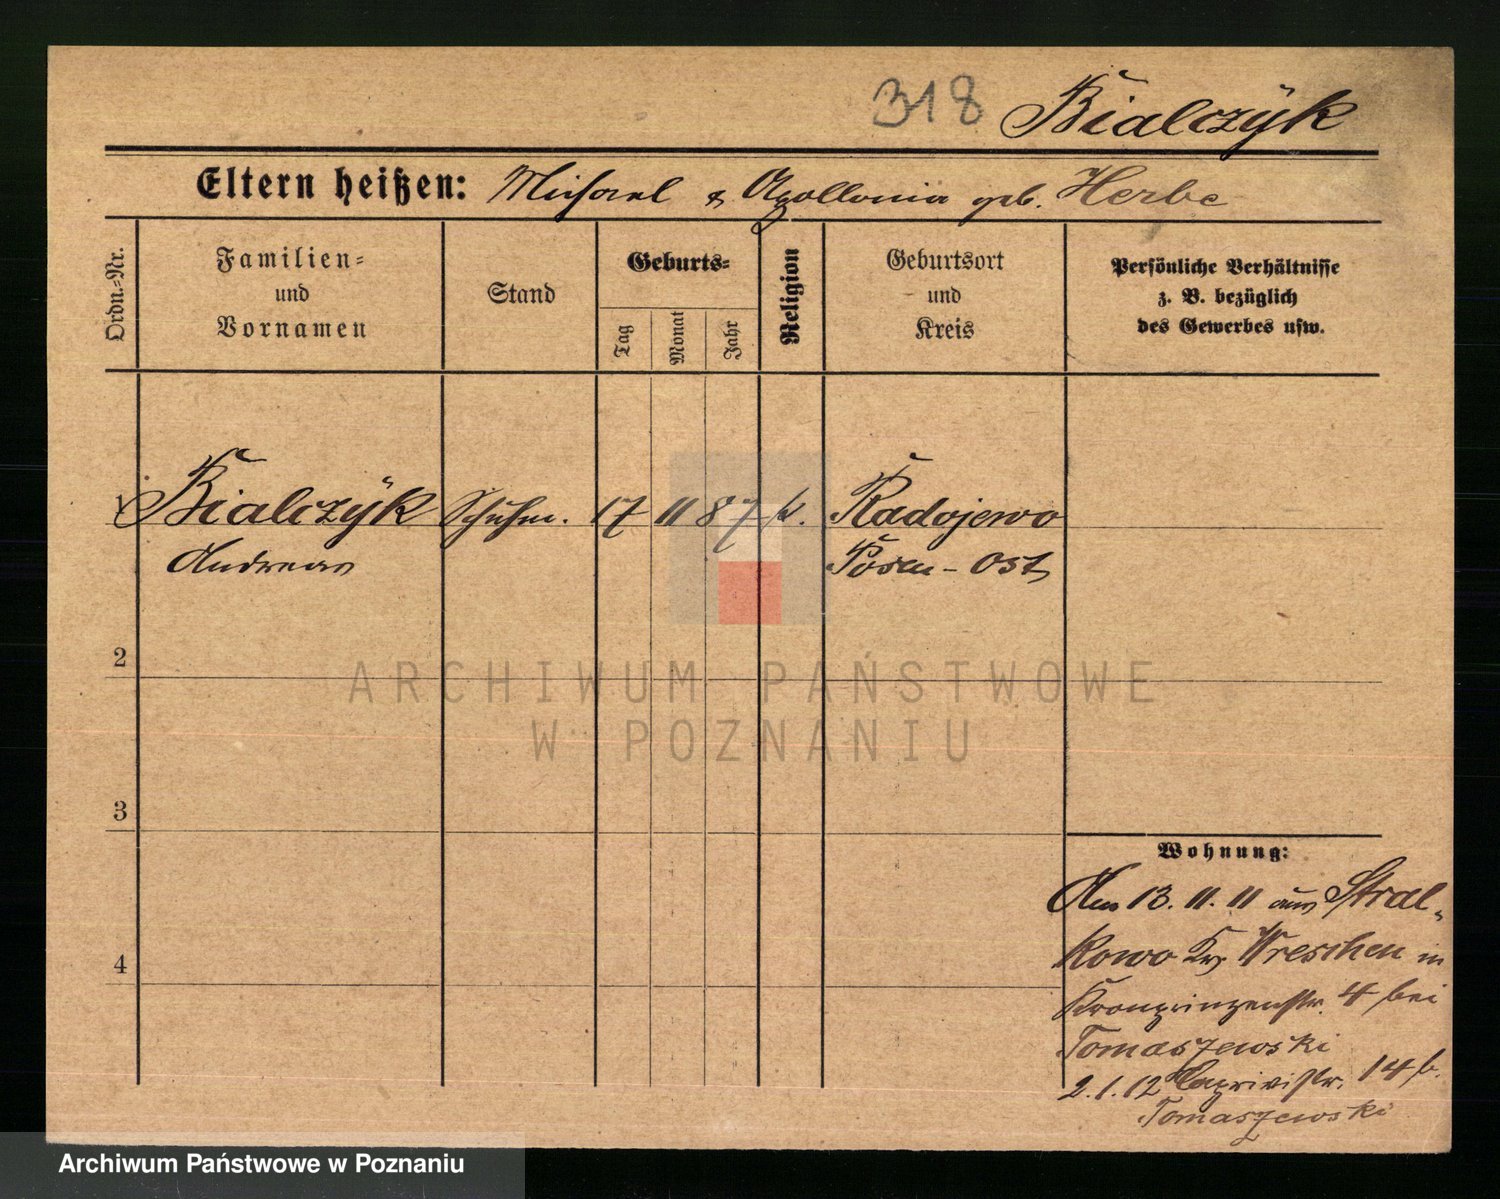 318 Bialczyk
Eltern heißen: Michael & Apollonia geb. Herbe
Ordn.-Nr.
Familien-
und
Vornamen
Stand
Geburts-
Tag
Monat
Jahr
Religion
Geburtsort
und
Kreis
Persönliche Verhältnisse
z. B. bezüglich
des Gewerbes usw.
1 Bialczyk Schuhm. 17 11 87 k. Radojewo
Andreas Posen-Ost
2
3
4
Wohnung:
Am 13. 11. 11 aus Stral-
kowo Krs Wreschen in
Kronprinzenstr. 4 bei
Tomaszewski
2.1.12 Caprivistr. 14 b.
Tomaszewski
ARCHIWUM PAŃSTWOWE
W POZNANIU
Archiwum Państwowe w Poznaniu